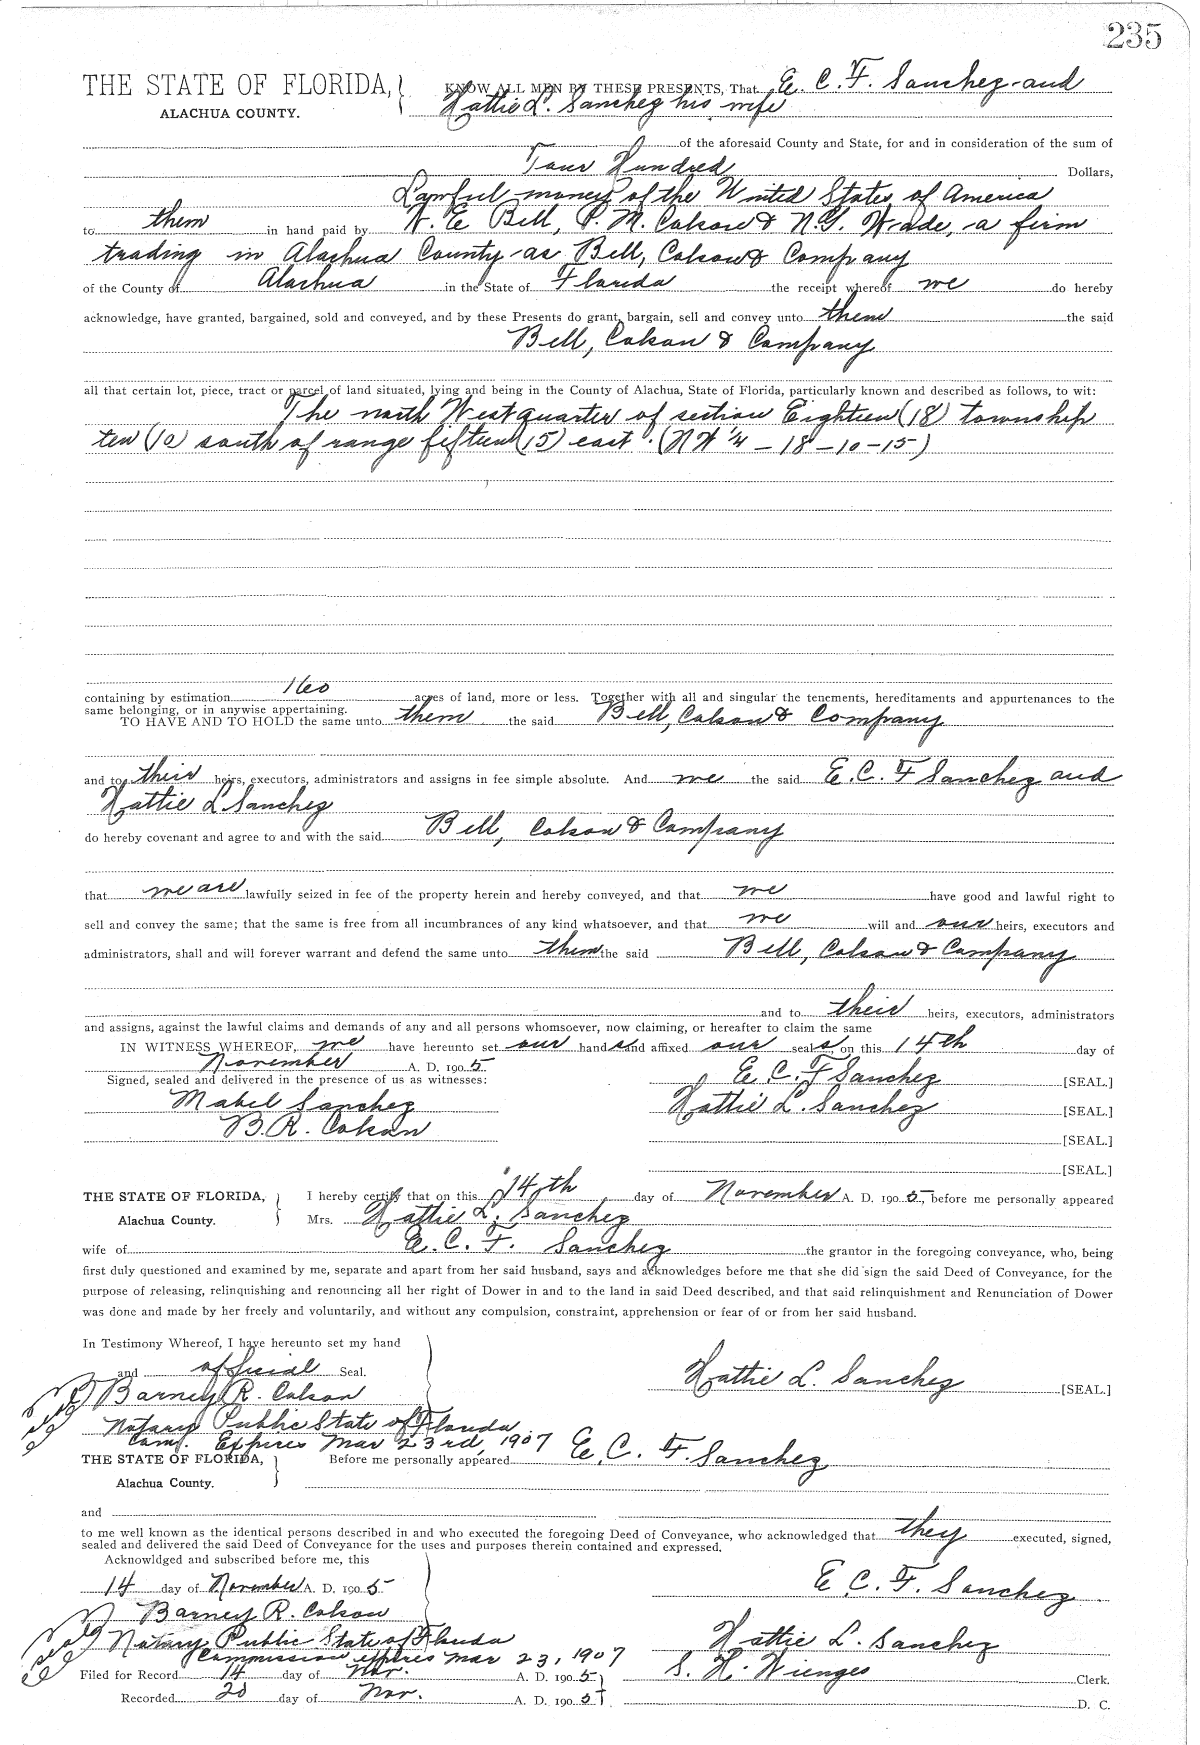 235
THE STATE OF FLORIDA, KNOW ALL MEN BY THESE PRESENTS, That E. C. F. Sanchez and
ALACHUA COUNTY. Hattie L. Sanchez his wife
of the aforesaid County and State, for and in consideration of the sum of
Four Hundred Dollars,
Lawful money of the United States of America
to them in hand paid by W. E. Bell, P. M. Colson & N. G. Wade, a firm
trading in Alachua County as Bell, Colson & Company
of the County of Alachua in the State of Florida the receipt whereof we do hereby
acknowledge, have granted, bargained, sold and conveyed, and by these Presents do grant, bargain, sell and convey unto them the said
Bell, Colson & Company
all that certain lot, piece, tract or parcel of land situated, lying and being in the County of Alachua, State of Florida, particularly known and described as follows, to wit:
The north West quarter of section Eighteen (18) township
ten (10) south of range fifteen (15) east. (NW 1/4 - 18 - 10 - 15)
containing by estimation 160 acres of land, more or less. Together with all and singular the tenements, hereditaments and appurtenances to the
same belonging, or in anywise appertaining.
TO HAVE AND TO HOLD the same unto them the said Bell, Colson & Company
and to their heirs, executors, administrators and assigns in fee simple absolute. And we the said E. C. F Sanchez and
Hattie L Sanchez
do hereby covenant and agree to and with the said Bell, Colson & Company
that we are lawfully seized in fee of the property herein and hereby conveyed, and that we have good and lawful right to
sell and convey the same; that the same is free from all incumbrances of any kind whatsoever, and that we will and our heirs, executors and
administrators, shall and will forever warrant and defend the same unto them the said Bell, Colson & Company
and to their heirs, executors, administrators
and assigns, against the lawful claims and demands of any and all persons whomsoever, now claiming, or hereafter to claim the same
IN WITNESS WHEREOF, we have hereunto set our hands and affixed our seals, on this 14th day of
November A. D. 1905
Signed, sealed and delivered in the presence of us as witnesses: E. C. F Sanchez [SEAL.]
Mabel Sanchez Hattie L. Sanchez [SEAL.]
B. R. Colson [SEAL.]
[SEAL.]
THE STATE OF FLORIDA, I hereby certify that on this 14th day of November A. D. 1905, before me personally appeared
Alachua County. Mrs. Hattie L. Sanchez
wife of E. C. F. Sanchez the grantor in the foregoing conveyance, who, being
first duly questioned and examined by me, separate and apart from her said husband, says and acknowledges before me that she did sign the said Deed of Conveyance, for the
purpose of releasing, relinquishing and renouncing all her right of Dower in and to the land in said Deed described, and that said relinquishment and Renunciation of Dower
was done and made by her freely and voluntarily, and without any compulsion, constraint, apprehension or fear of or from her said husband.
In Testimony Whereof, I have hereunto set my hand
and official Seal. Hattie L. Sanchez [SEAL.]
Barney R. Colson
Notary Public State of Florida
Com. Expires Mar 23rd, 1907
THE STATE OF FLORIDA, Before me personally appeared E. C. F. Sanchez
Alachua County.
and
to me well known as the identical persons described in and who executed the foregoing Deed of Conveyance, who acknowledged that they executed, signed,
sealed and delivered the said Deed of Conveyance for the uses and purposes therein contained and expressed.
Acknowldged and subscribed before me, this
14 day of November A. D. 1905 E C. F. Sanchez
Barney R. Colson
Notary Public State of Florida Hattie L. Sanchez
Commission expires Mar 23, 1907
Filed for Record 14 day of Nov. A. D. 1905 S. H. Wienges Clerk.
Recorded 20 day of Nov. A. D. 1905 D. C.